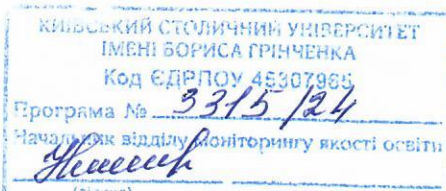 КИЇВСЬКИЙ СТОЛИЧНИЙ УНІВЕРСИТЕТ
ІМЕНІ БОРИСА ГРІНЧЕНКА
Код ЄДРПОУ 45307965
Програма № 3315/24
Начальник відділу моніторингу якості освіти
(підпис)